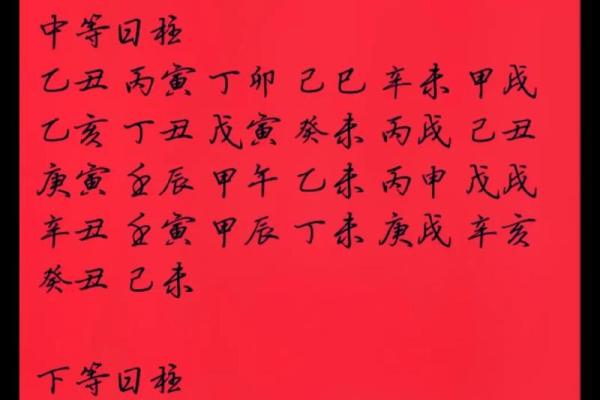 中等日柱
乙丑 丙寅 丁卯 己巳 辛未 甲戌
乙亥 丁丑 戊寅 癸未 丙戌 己丑
庚寅 壬辰 甲午 乙未 丙申 戊戌
辛丑 壬寅 甲辰 丁未 庚戌 辛亥
癸丑 己未
下等日柱